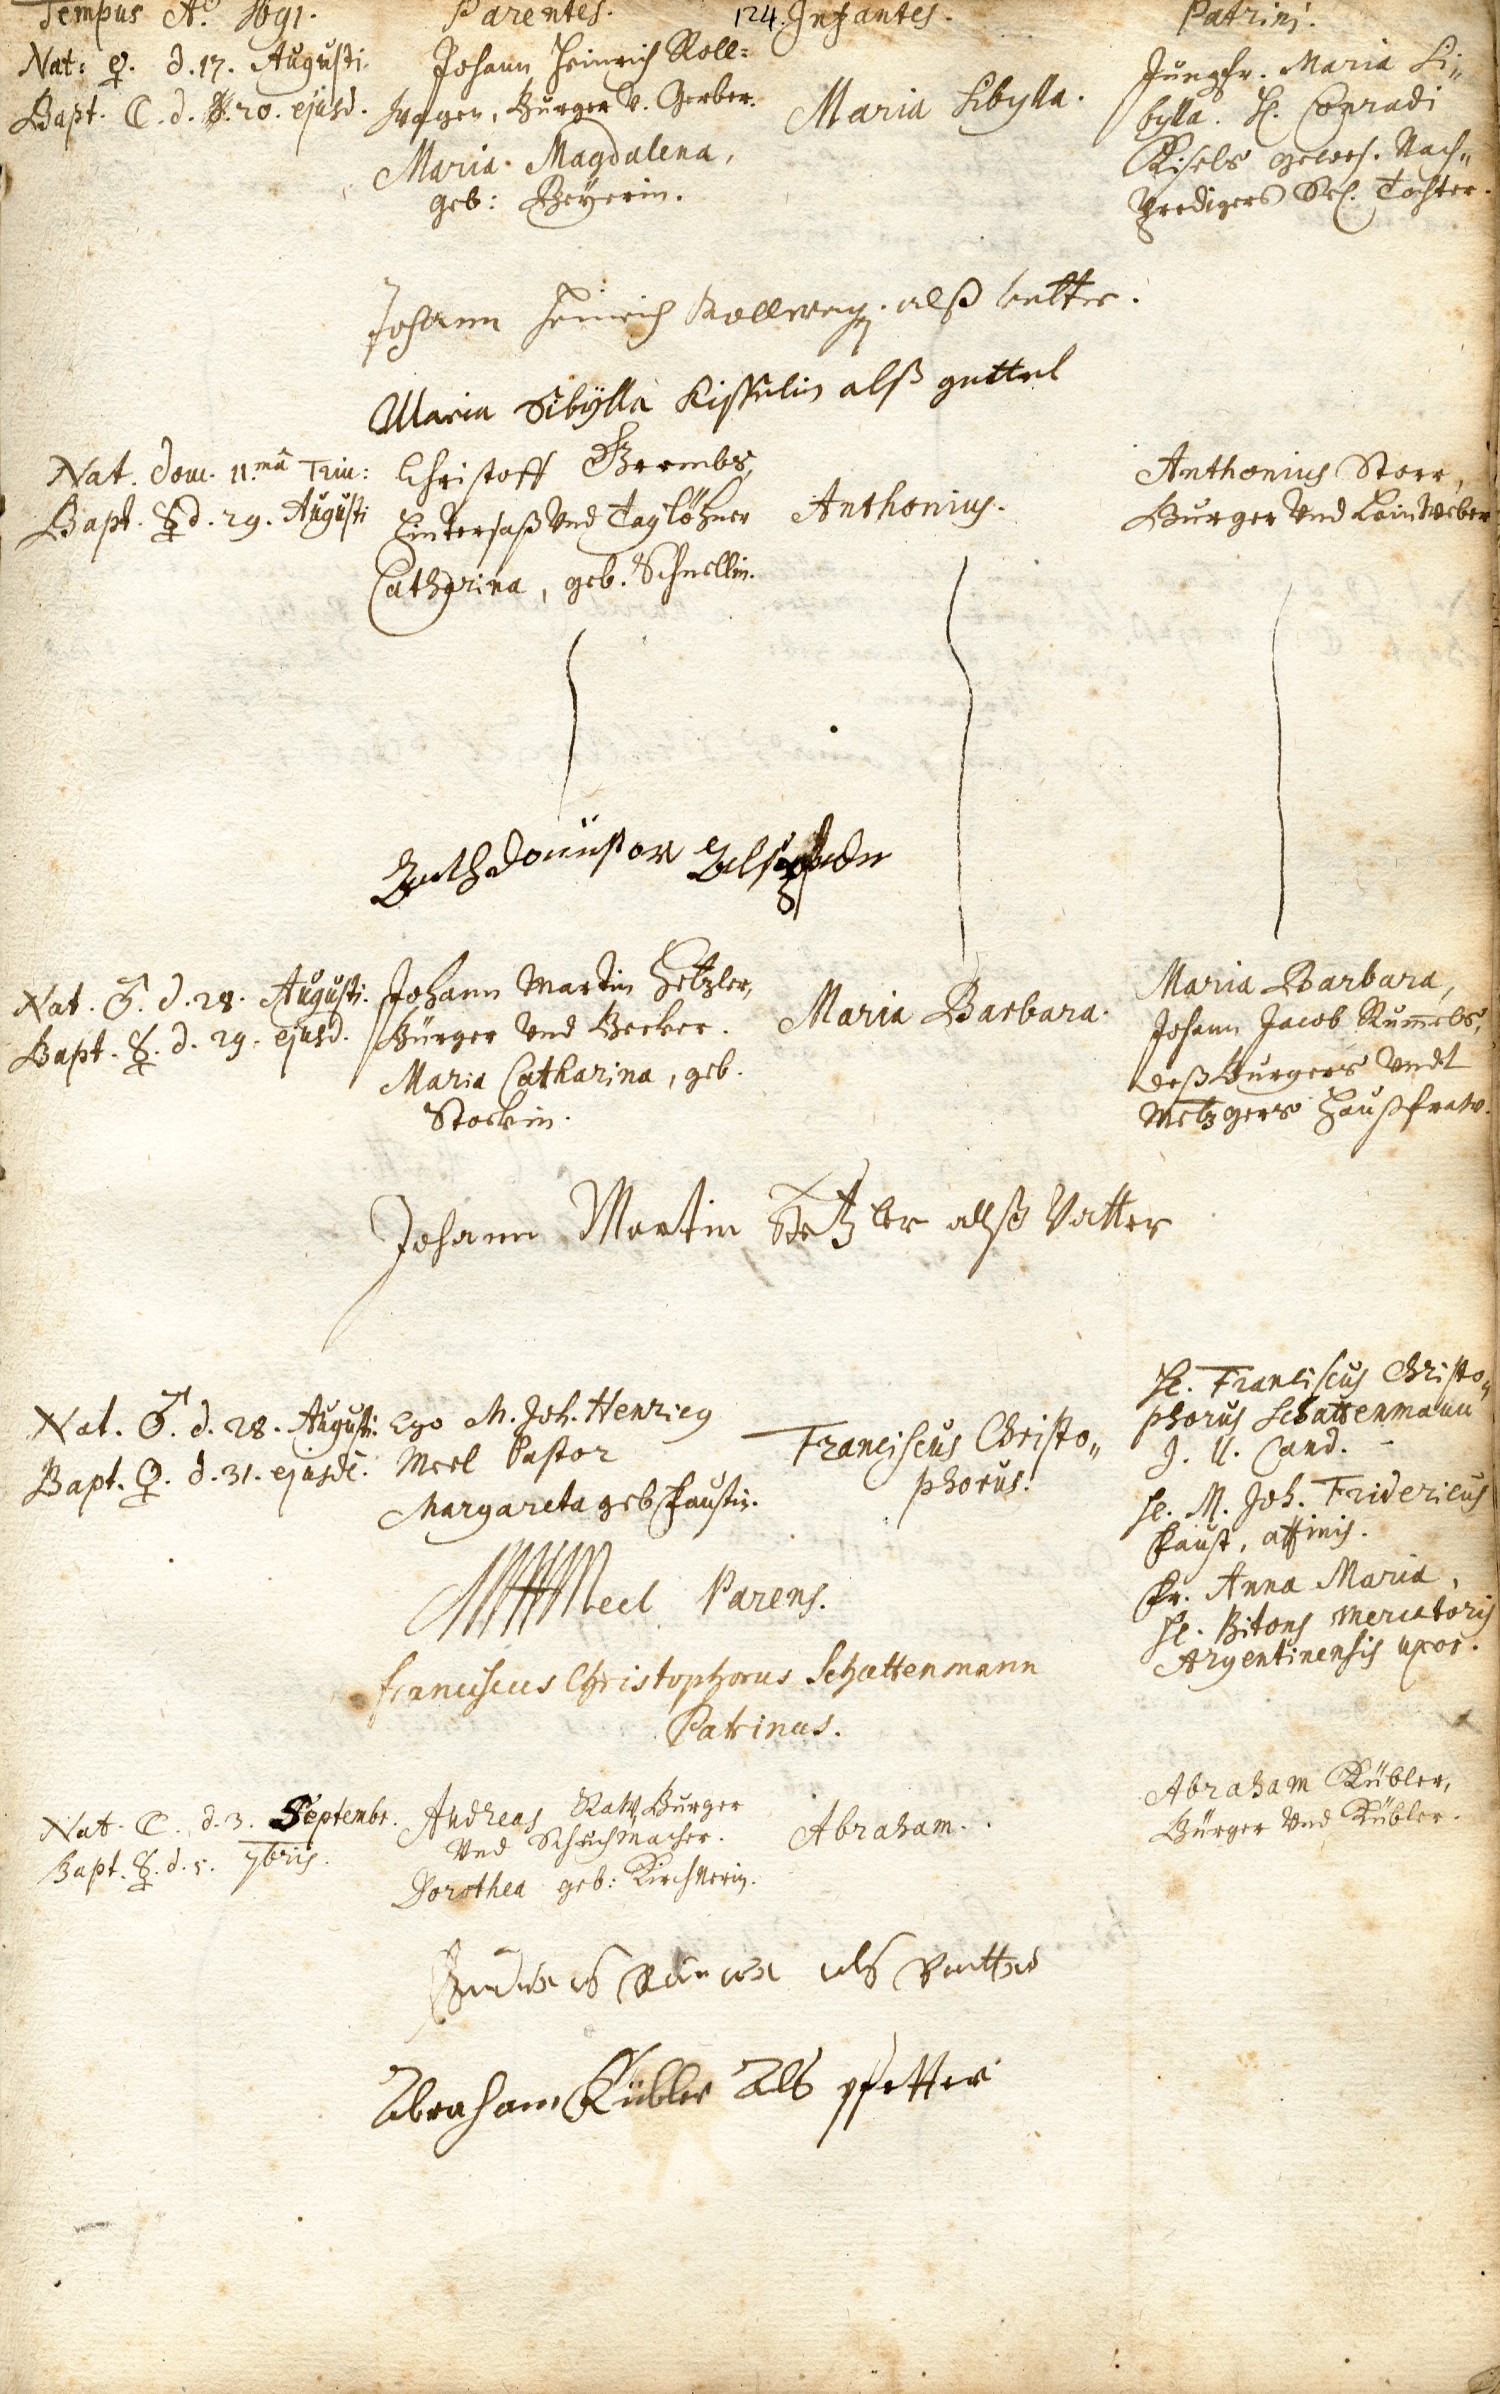 Tempus Aº 1691. Parentes. 124. Infantes. Patrini.
Nat: ☿. d. 17. Augusti.
Bapt. ☾. d. 20. ejusd.
Johann Heinrich Roll=
wagen, Burger v. Gerber.
Maria Magdalena,
geb: Beÿerin.
Maria Sibylla.
Jungfr. Maria Si„
bylla. H. Conradi
Kisels gewes. Nach„
Predigers Sel. Tochter.
Johann Heinrich Rollwag. alß vatter.
Maria Sibÿlla Kisselin alß gettel
Nat. Dom. 11.mâ Trin:
Bapt. ☿ d. 29. Augusti
Christoff Grembs,
Hintersaß Vnd Taglöhner
Catharina, geb. Schnellin.
Anthonius.
Anthonius Storr,
Burger Vnd Leintweber
Nat. ♂. d. 28. Augusti.
Bapt. ☿. d. 29. ejusd.
Johann Martin Hetzler,
Bürger Vnd Becker.
Maria Catharina, geb.
Stockin.
Maria Barbara.
Maria Barbara,
Johann Jacob Rum̄els,
deß Burgers Vndt
Metzgers Haußfraw.
Johann Martin Hetzler alß Vatter
Nat. ♂. d. 28. Augusti.
Bapt. ♀. d. 31. ejusd.
Ego M. Joh. Henricg
Meel Pastor
Margareta geb. Faustin.
Franciscus Christo„
phorus.
H. Franciscus Christo„
phorus Schattenmann
J. U. Cand.
H. M. Joh. Fridericus
Faust, affinis.
Fr. Anna Maria,
H. Bitons Mercatoris
Argentinensis uxor.
Meel Parens.
Franciscus Christophorus Schattenmann
Patrinus.
Nat. ☾. d. 3. Septembr.
Bapt. ☿. d. 5. 7bris.
Andreas Raw, Burger
Vnd Schuchmacher.
Dorothea geb: Kirchnerin.
Abraham.
Abraham Kübler,
Bürger Vnd Kübler.
als vatter
Abraham Kübler Als pfetter